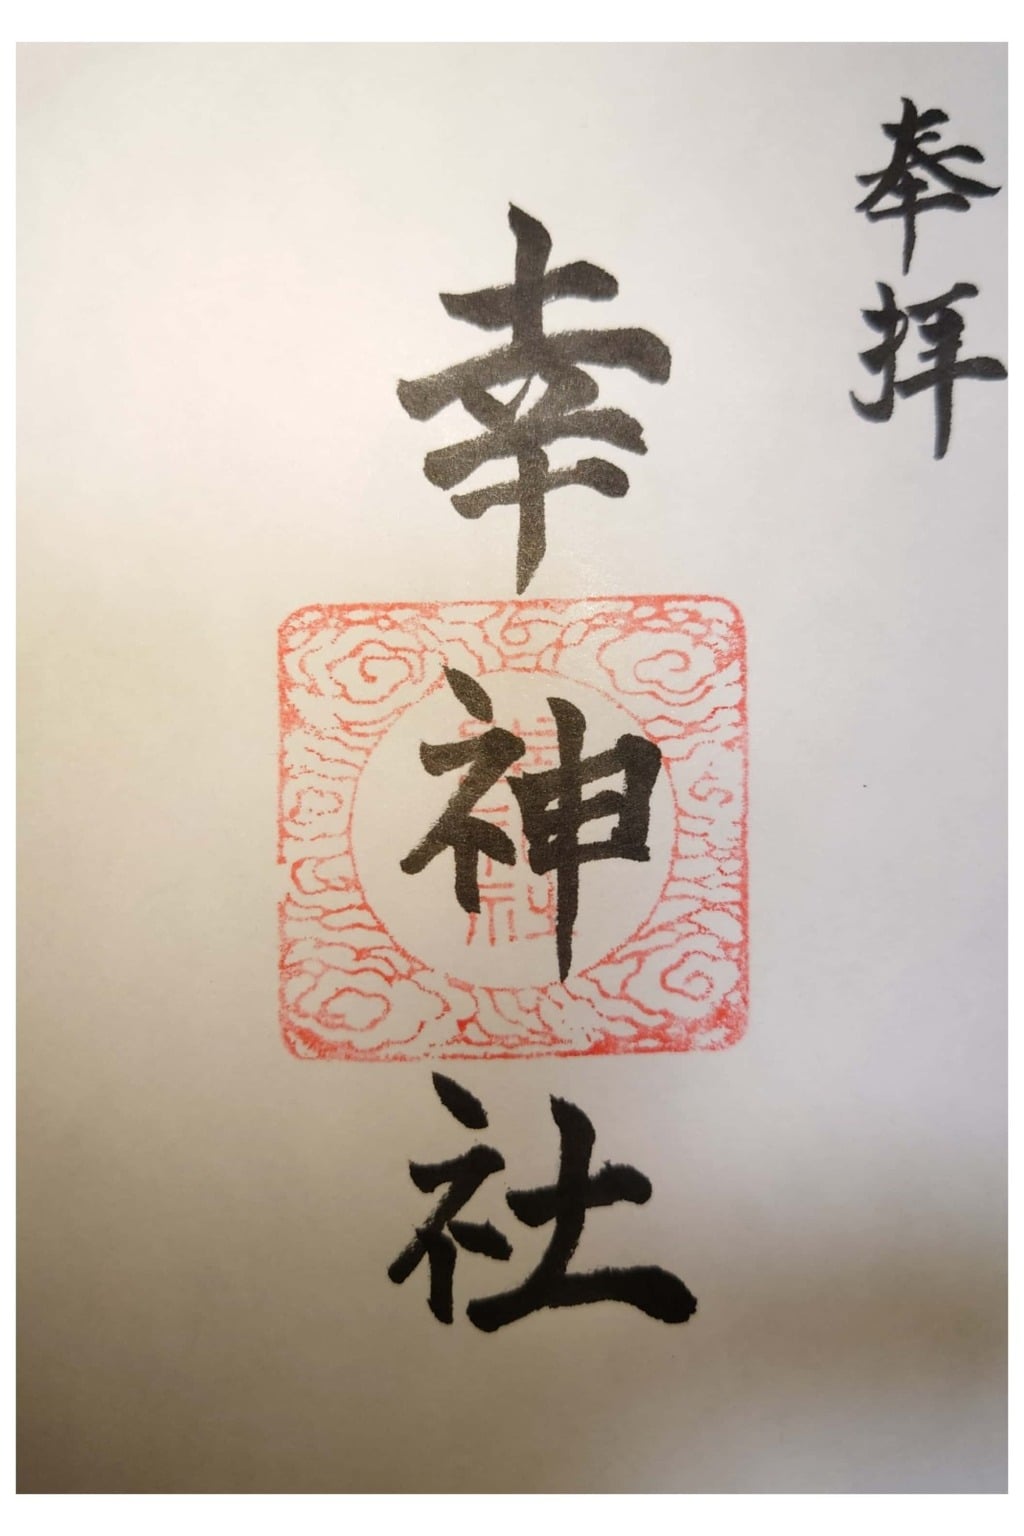 奉拝
幸神社